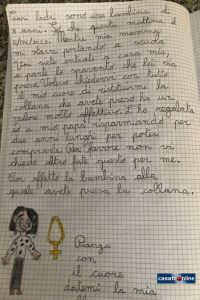 Cari ladri sono una bambina di
8 anni. So che questa mattina
mentre la mia mamma
mi stava portando a scuola
Voi siete entrati a casa mia.
a parte lo spavento che lei sia
presa. Volevo chiedervi con tutto
il mio cuore di restituirmi la
collana che avete preso ha un
valore molto affettivo. L'ho regalata
io a mio papà risparmiando per
due anni lunghi per poter
comprarla. Per favore non vi
chiedo altro fate questo per me.
Con affetto la bambina alla
quale avete preso la collana.
Piango
con
il cuore
datemi la mia
casateonline